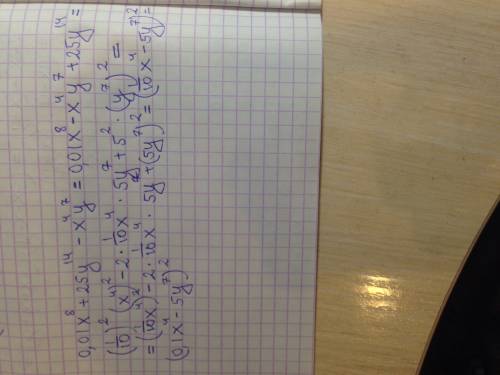 0,01x⁸+25y¹⁴-x⁴y⁷=0,01x⁸-x⁴y⁷+25y¹⁴=
(1/10)²(x⁴)²-2·1/10x⁴·5y⁷+5²·(y⁷)²=
=(1/10x⁴)²-2·1/10x⁴·5y⁷+(5y⁷)²=(1/10x⁴-5y⁷)²=
(0,1x⁴-5y⁷)²